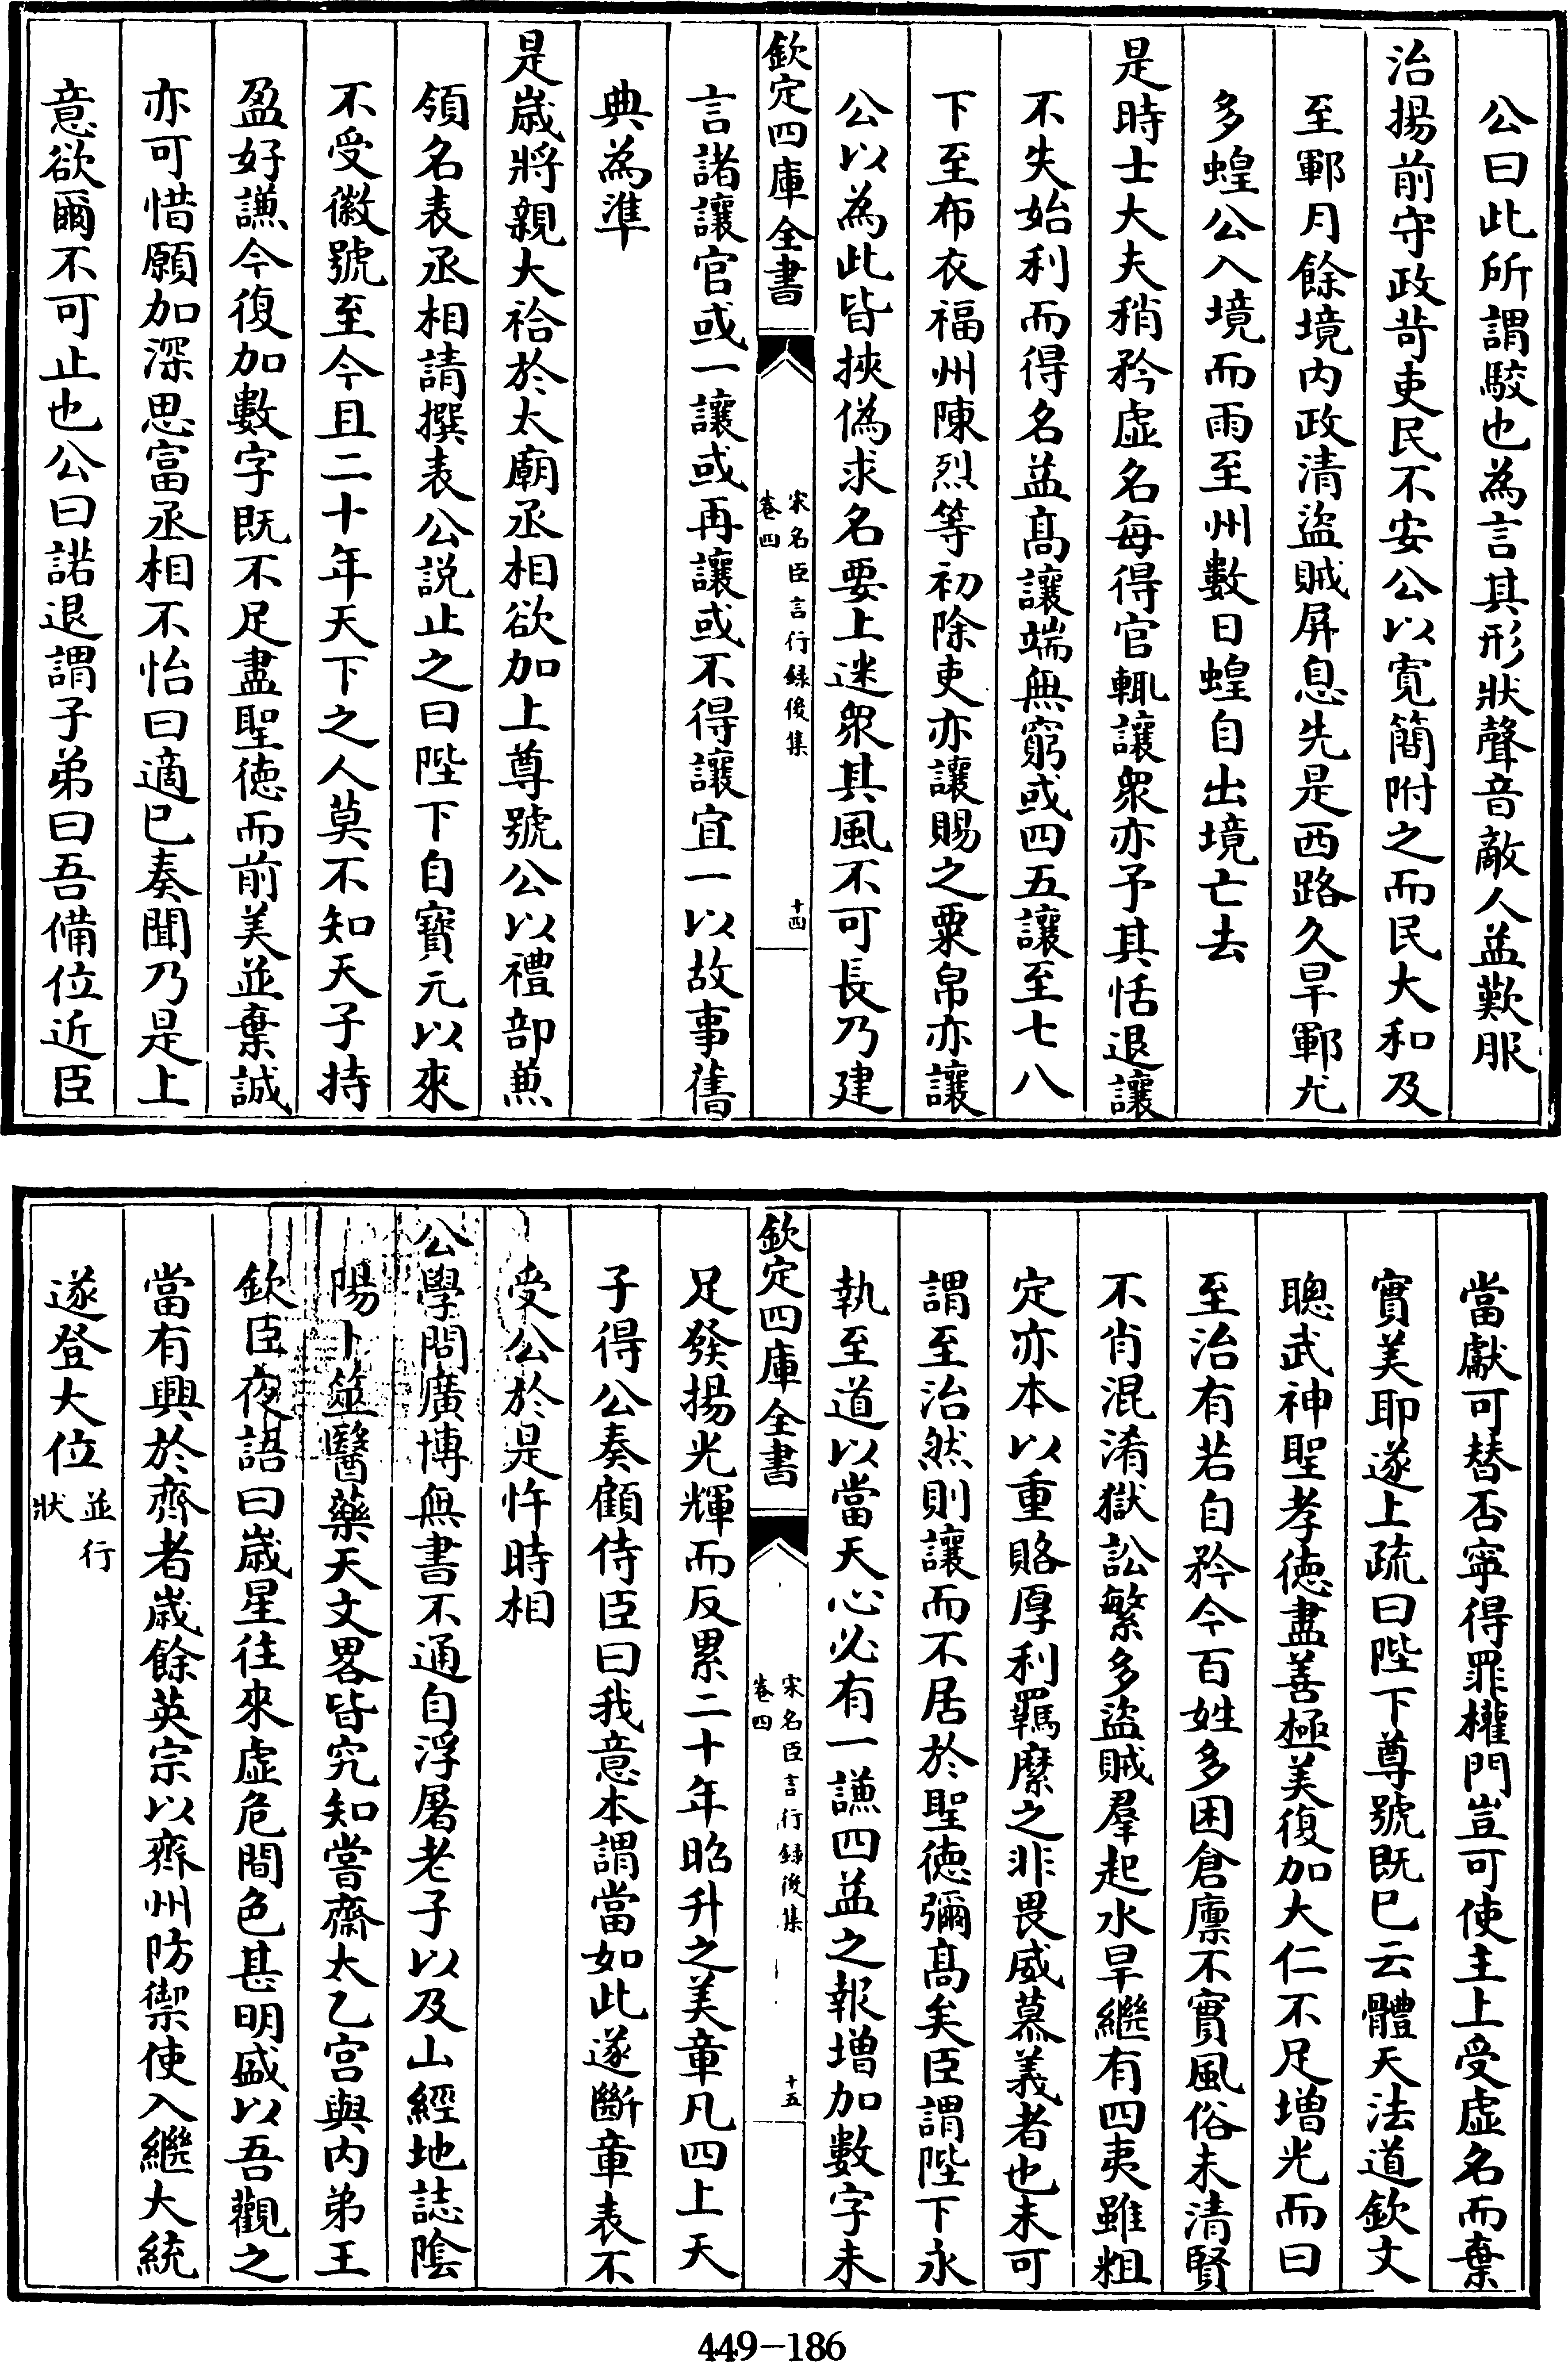 公曰此所謂駮也為言其形狀聲音敵人益歎服
治揚前守政苛吏民不安公以寛簡附之而民大和及
至鄆月餘境内政清盜賊屏息先是西路久旱鄆尤
多蝗公入境而雨至州數日蝗自出境亡去
是時士大夫稍矜虛名每得官輒讓衆亦予其恬退讓
不失始利而得名益髙讓端無窮或四五讓至七八
下至布衣福州陳烈等初除吏亦讓賜之粟帛亦讓
公以為此皆挾偽求名要上迷衆其風不可長乃建
欽定四庫全書
宋名臣言行録後集
卷四
十四
言諸讓官或一讓或再讓或不得讓宜一以故事舊
典為準
是嵗將親大祫於太廟丞相欲加上尊號公以禮部兼
領名表丞相請撰表公説止之曰陛下自寶元以來
不受徽號至今且二十年天下之人莫不知天子持
盈好謙今復加數字既不足盡聖徳而前美並棄誠
亦可惜願加深思富丞相不怡曰適已奏聞乃是上
意欲爾不可止也公曰諾退謂子弟曰吾備位近臣
當獻可替否寧得罪權門豈可使主上受虛名而棄
實美耶遂上疏曰陛下尊號既已云體天法道欽文
聰武神聖孝徳盡善極美復加大仁不足増光而曰
至治有若自矜今百姓多困倉廪不實風俗未清賢
不肖混淆獄訟繁多盜賊羣起水旱繼有四夷雖粗
定亦本以重賂厚利羈縻之非畏威慕義者也未可
謂至治然則讓而不居於聖徳彌髙矣臣謂陛下永
執至道以當天心必有一謙四益之報増加數字未
欽定四庫全書
宋名臣言行録後集
卷四
十五
足發揚光輝而反累二十年昭升之美章凡四上天
子得公奏顧侍臣曰我意本謂當如此遂斷章表不
受公於是忤時相
公學問廣博無書不通自浮屠老子以及山經地誌隂
陽卜筮醫藥天文畧皆究知嘗齋太乙宫與内弟王
欽臣夜語曰嵗星往來虛危間色甚明盛以吾觀之
當有興於齊者嵗餘英宗以齊州防禦使入繼大統
遂登大位並行
狀
449-186